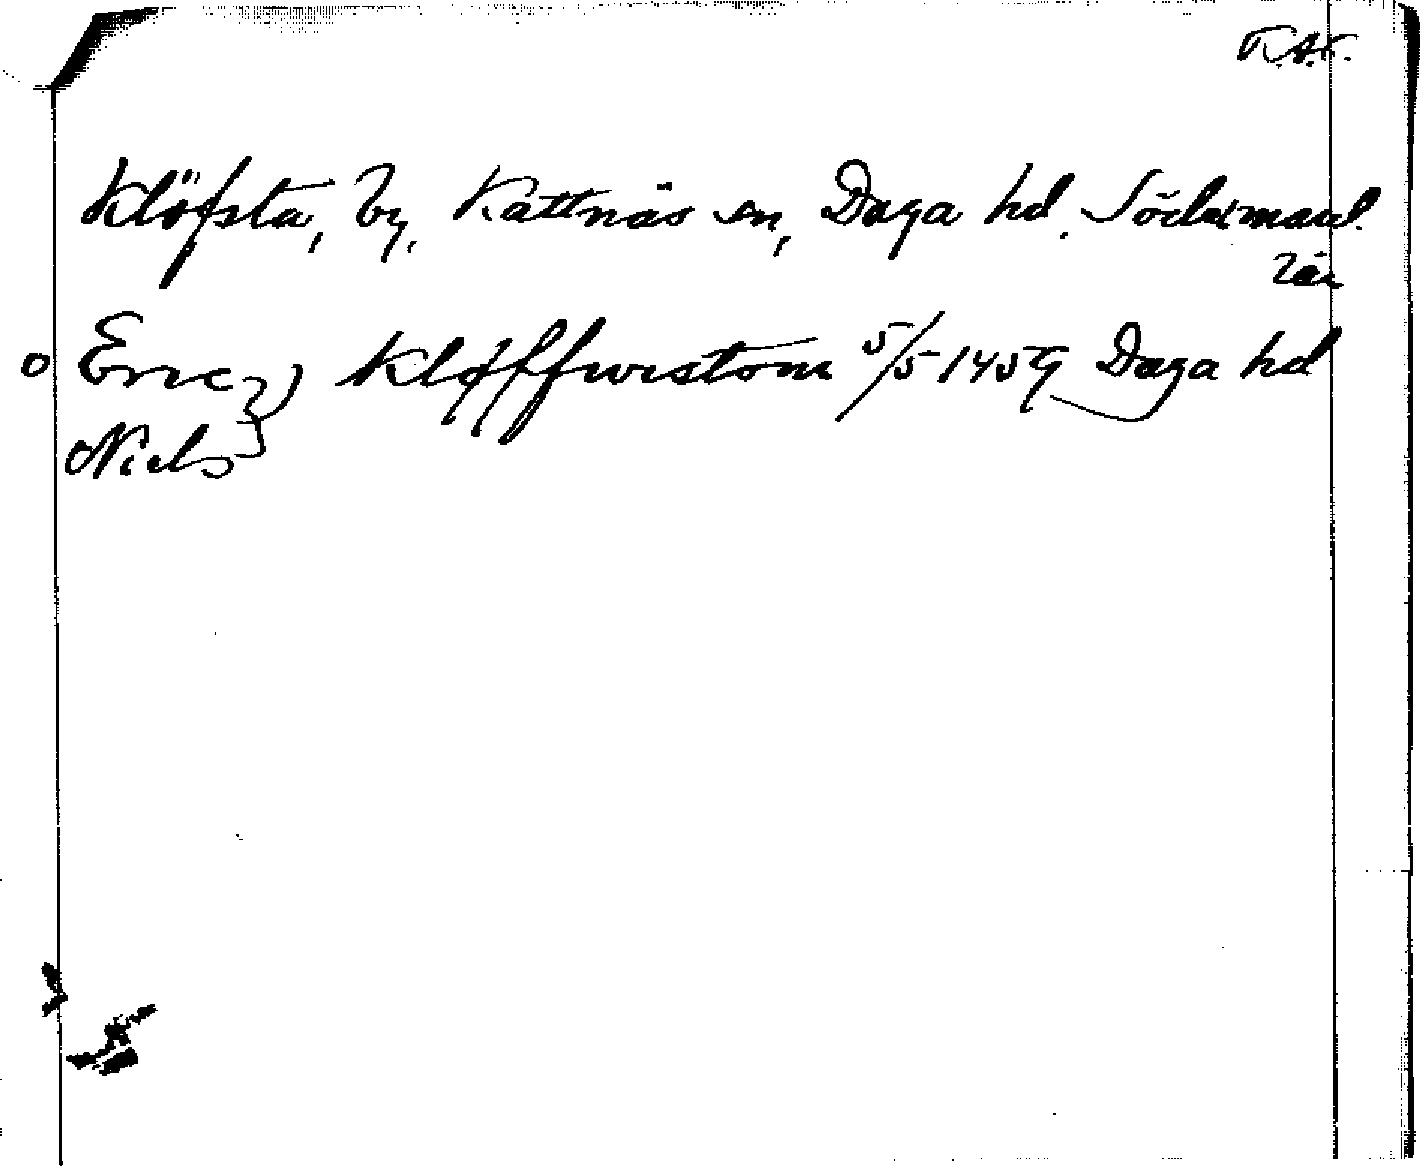 R.A.K.
Klöfsta, by, Kattnäs sn, Daga hd. Södermanl.
län
o Eric } Kløffwistom 5/5 1459 Daga hd
Niels